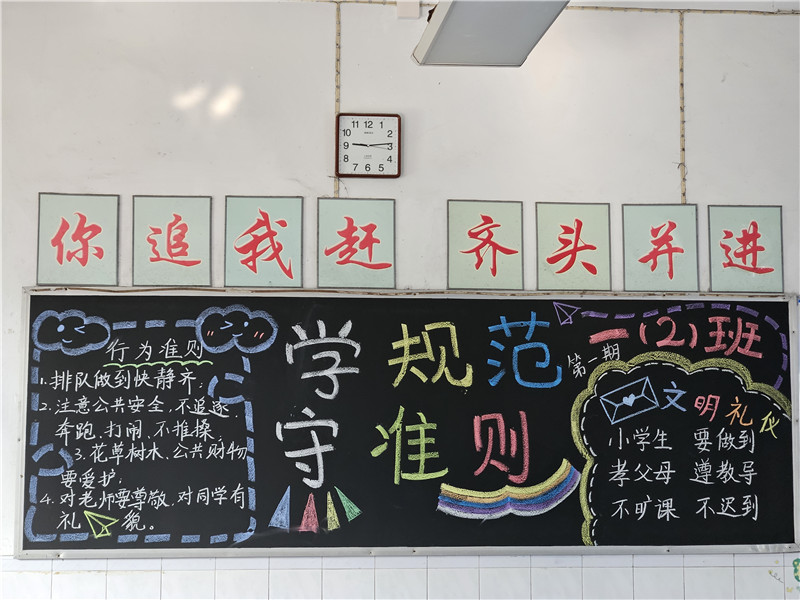 11 12 1
10 2
9 3
8 4
7 6 5
你追我赶 齐头并进
行为准则
1.排队做到快静齐;
2.注意公共安全,不追逐、
奔跑、打闹、不推搡。
3.花草树木、公共财物
要爱护。
4.对老师要尊敬、对同学有
礼貌。
学规范
守准则
第一期
一(2)班
文明礼仪
小学生 要做到
孝父母 遵教导
不旷课 不迟到